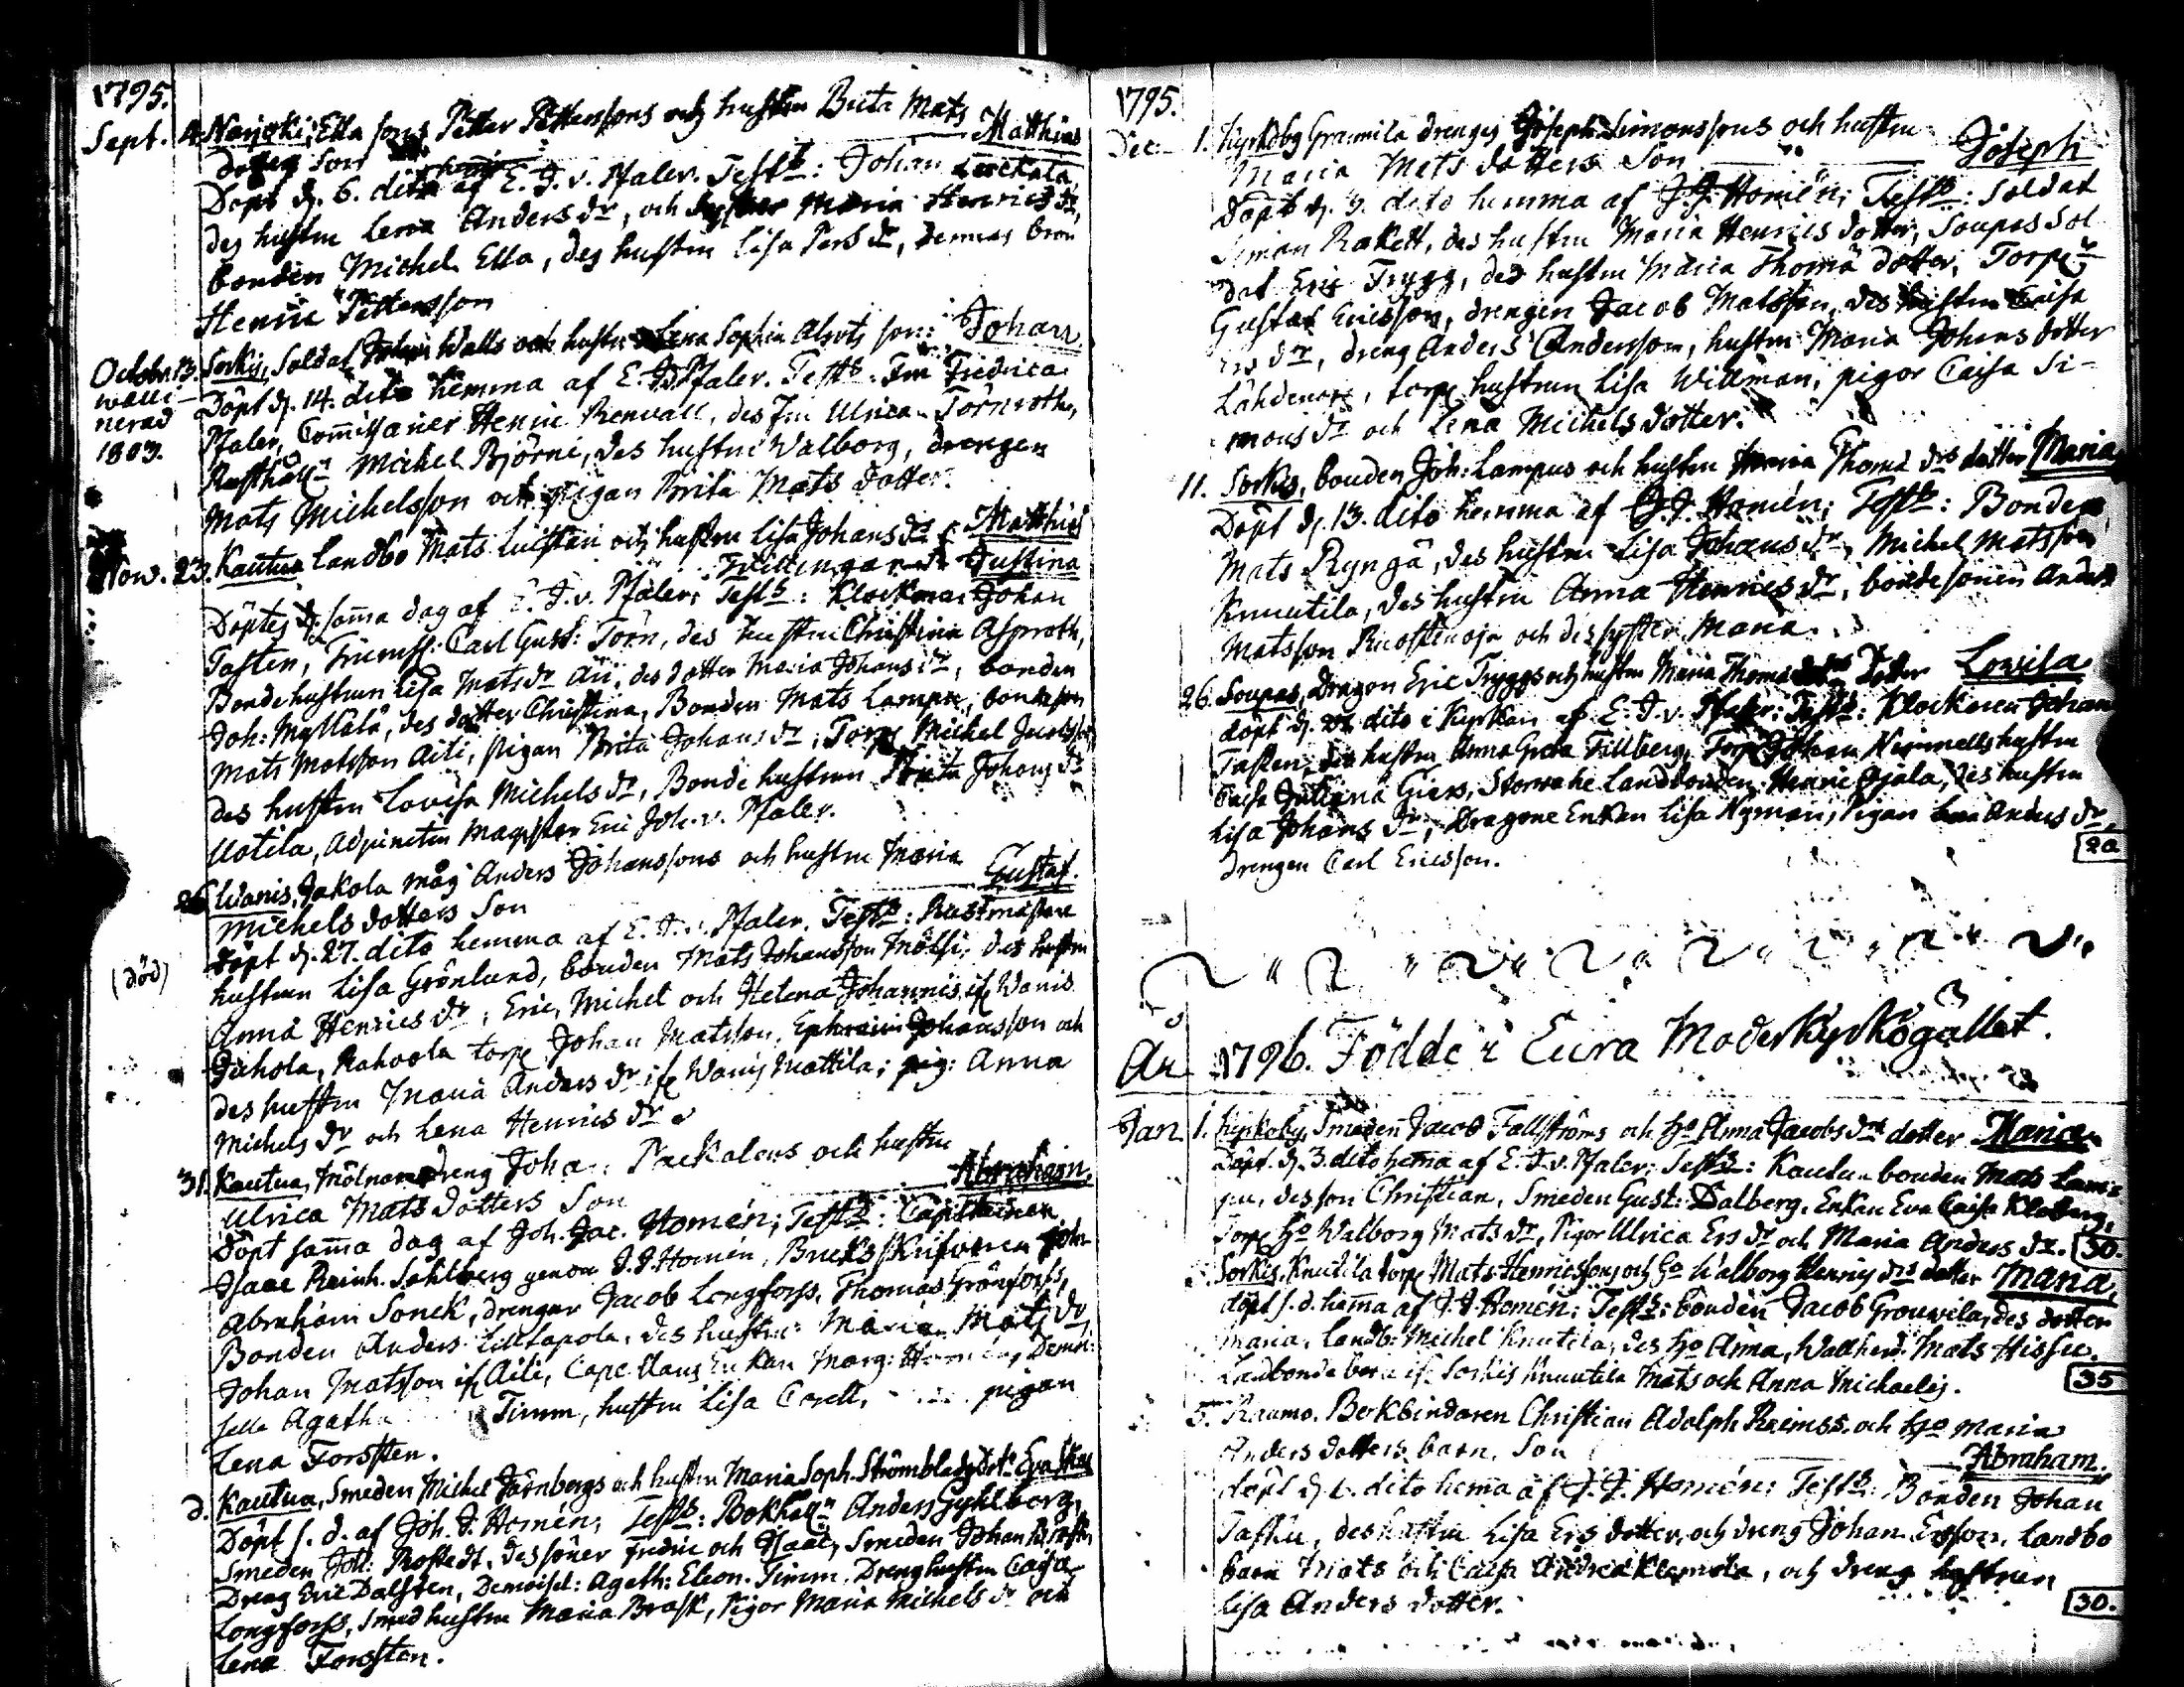 1795.
Sept. 4. Narjoki, Ella sons Petter Pettersons och hustru Brita Mats
dotters Son Matthias
Döpt d. 6. dito hemma af E. J. v. Pfaler. Test:s: Johan
des hustru Lena Anders dr, och Maria Henrics dr,
bonden Michel Ella, des hustru Lisa Pers dr, dennes bror
Henric Pettersson
Octobr. 13. Sorkis, Soldat Johan Walls och hustru Lena Sophia Alsrots son: Johan.
wacci-
nerad
1803.
Döpt d. 14. dito hemma af E. J. v. Pfaler. Test:s. Fru Fredrica
Pfaler, Commissarier Henric Renvall, des Fru Ulrica Törnroth,
Rusthåll:n Michel Björni, des hustru Walborg, drengen
Mats Michelsson och Pigan Brita Mats dotter.
Nov. 23. Kautua Landbo Mats och hustru Lisa Johans dr Matthias
Twillingar Justina
Döptes samma dag af E. J. v. Pfaler; Test:s: Klockaren Johan
Tasten, Carl Gust: Törn, des hustru Christina Asproth,
Bondehustrun Lisa Mats dr Äii, des dotter Maria Johans dr, bonden
Joh: Myllälä, des dotter Christina, Bonden Mats Lampu, bondeson
Mats Matsson Äiti, pigan Brita Johans dr, Torp: Michel Jacobsson
des hustru Lovisa Michels dr, Bonde hustrun Brita Johans dr
Uotila, Adjuncten Magister Eric Joh. v. Pfaler.
26. Wanis, Jakola måg Anders Johanssons och hustru Maria
Michels dotters Son Gustaf.
(död)
döpt d. 27. dito hemma af E. J. v. Pfaler. Test:s: Rustmästare
hustrun Lisa Grönlund, bonden Mats Johansson Mölsi, des hustru
Anna Henrics dr; Eric, Michel och Helena Johannis if: Wanis
Jakola, Rahvola torp: Johan Matsson, Ephraim Johansson och
des hustru Maria Anders dr if: Wanis Mattila; pig: Anna
Michels dr och Lena Henrics dr
31. Kautua, Mölnaredreng Johan Packalens och hustru
Ulrica Mats dotters Son Abraham.
Döpt samma dag af Joh. Jac. Homén; Test:s: Capitainen
Isaac Reinh. Sahlberg genom J. J. Homén, Bruks Skrifvaren Joh.
Abraham Sonck, drengar Jacob Longforss, Thomas Grönforss,
Bonden Anders Lilllapola, des hustru Maria Mats dr,
Johan Matsson if: Äiti, Capellans Enkan Marg: Demoi:
selle Agatha Timm, hustru Lisa Corell, pigan
Lena Forssten.
d. Kautua, Smeden Michel Järnbergs och hustru Maria Soph. Strömblads dr Eva
Döpt s. d. af Joh. J. Homén; Test:s: Bokhåll:n Anders Gyhlberg,
Smeden Joh: Rostedt, des söner Fredric och Isaac, Smeden Johan
Dreng Eric Dalsten, Demoisel: Agath: Eleon. Timm, Dreng hustru Caisa
Longforss, Smed hustru Maria Brask, Pigor Maria Michels dr och
Lena Forssten.
1795.
Dec. 1. Kyrkoby Grannila drengs Joseph Simonssons och hustru
Maria Mats dotters Son Joseph
Döpt d. 3. dito hemma af J. J. Homén; Test:s: Soldat
Simon Rakett, des hustru Maria Henrics dotter, Soupas Sol
dat Eric Trygg, des hustru Maria Thomä dotter, Torp:n
Gustaf Ericsson, drengen Jacob Matsson, des hustru Caisa
Ers dr, dreng Anders Andersson, hustru Maria Johans dotter
Lähdenoja, torp: hustrun Lisa Willman, pigor Caisa Si-
mons dr och Lena Michels dotter.
11. Sorkis, bonden Joh: Lampus och hustru Maria Thomä drs dotter Maria
Döpt d. 13. dito hemma af J. J. Homén; Test:s: Bonden
Mats Ryngä, des hustru Lisa Johans dr, Michel Matsson
Knuutila, des hustru Anna Henrics dr, bondesonen Anders
Matsson Ruostenoja och des syster Maria.
26. Soupas, Dragon Eric Tryggs och hustru Maria Thomä Dotter Lovisa
döpt d. dito i Kyrkan af E. J. v. Pfaler: Test:s: Klockaren Johan
Tasten, des hustru Anna Greta Fillberg, Torp: Johan Nimmells hustru
Caisa Juliana Giers, Storwahe Landbonden Henric Ojala, des hustru
Lisa Johans dr, Dragone Enkan Lisa Nyman, Pigan Lena Anders dr,
drengen Carl Ericsson. 20
An 1796. Födde i Eura Moderkyrkogället.
Jan. 1. Kyrkoby, Smeden Jacob Fallströms och ho Anna Jacobs drs dotter Maria
Döpt d. 3. dito hema af E. J. v. Pfaler; Test:s: Kautua bonden Mats Lam-
pu, des son Christian, Smeden Gust: Dalberg, Enkan Eva Caisa Kloberg,
Torp: ho Walborg Mats dr, Pigor Ulrica Ers dr och Maria Anders dr. 30.
Sorkis, Knutila torp: Mats Henricssons och ho Walborg Henrics drs dotter Maria.
döpt s. d. hema af J. J. Homén; Test:s: bonden Jacob Grouvila, des dotter
Maria, landb: Michel Knutila, des ho Anna, Wallherd: Mats Hissu.
Landbonde barn if: Sorkis Knuutila Mats och Anna Michaelis. 35
5. Raumo, Bokbindaren Christian Adolph Reimss. och ho Maria
Anders dotters barn. Son Abraham.
döpt d. 6. dito hema af J. J. Homén; Test:s: Bonden Johan
Tasku, des hustru Lisa Ers dotter, och dreng Johan Ersson, Landbo
barn Mats och Caisa Andreæ Klemola, och dreng hustrun
Lisa Anders dotter. 30.